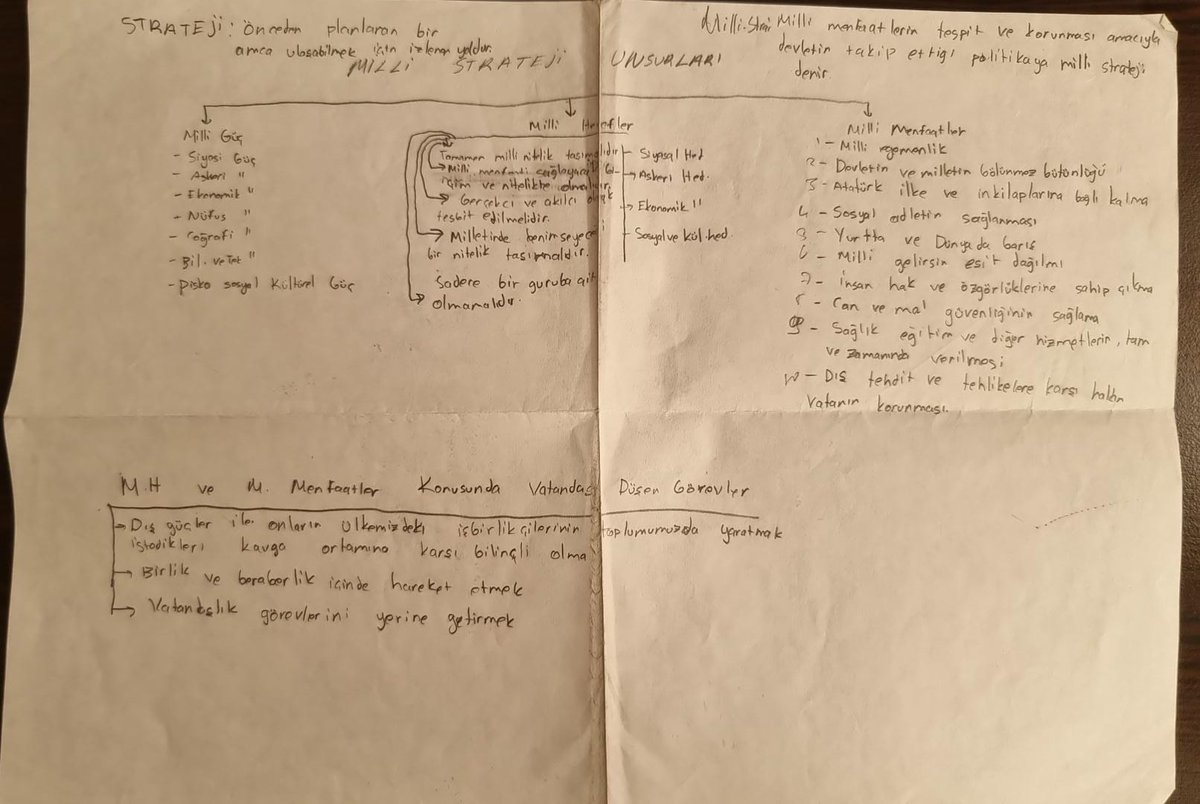 STRATEJİ: Önceden planlanan bir
amca ulaşabilmek için izlenen yoldur.
Milli Stra: Milli menfaatlerin tespit ve korunması amacıyla
devletin takip ettiği politikaya milli strateji
denir.
MİLLİ STRATEJİ UNSURLARI
Milli Güç
- Siyasi Güç
- Askeri "
- Ekonomik "
- Nüfus "
- Coğrafi "
- Bil. ve Tek "
- pisko sosyal Kültürel Güç
Milli Hedefler
Tamamen milli nitelik taşımalıdır
Milli menfaati sağlayacak
içim ve nitelikte olmalıdır
Gerçekçi ve akılcı olarak
tesbit edilmelidir.
Milletinde benimseyeceği
bir nitelik taşımalıdır.
Sadece bir guruba ait
olmamalıdır.
Siyasal Hed
Askeri Hed.
Ekonomik "
Sosyal ve kül. hed.
Milli Menfaatler
1- Milli egemenlik
2- Devletin ve milletin bölünmez bütünlüğü
3- Atatürk ilke ve inkilaplarına bağlı kalma
4- Sosyal adletin sağlanması
5- Yurtta ve Dünyada barış
6- Milli gelirsin eşit dağılmı
7- İnsan hak ve özgürlüklerine sahip çıkma
8- Can ve mal güvenliğinin sağlama
9- Sağlık eğitim ve diğer hizmetlerin, tam
ve zamanında verilmesi
10- Dış tehdit ve tehlikelere karşı halkın
Vatanın korunması.
M.H ve M. Menfaatler Konusunda Vatandaş Düşen Görevler
Dış güçler ile onların ülkemizdeki işbirlikçilerinin toplumumuzda yaratmak
istedikleri kavga ortamına karşı bilinçli olma
Birlik ve beraberlik içinde hareket etmek
Vatandaşlık görevlerini yerine getirmek